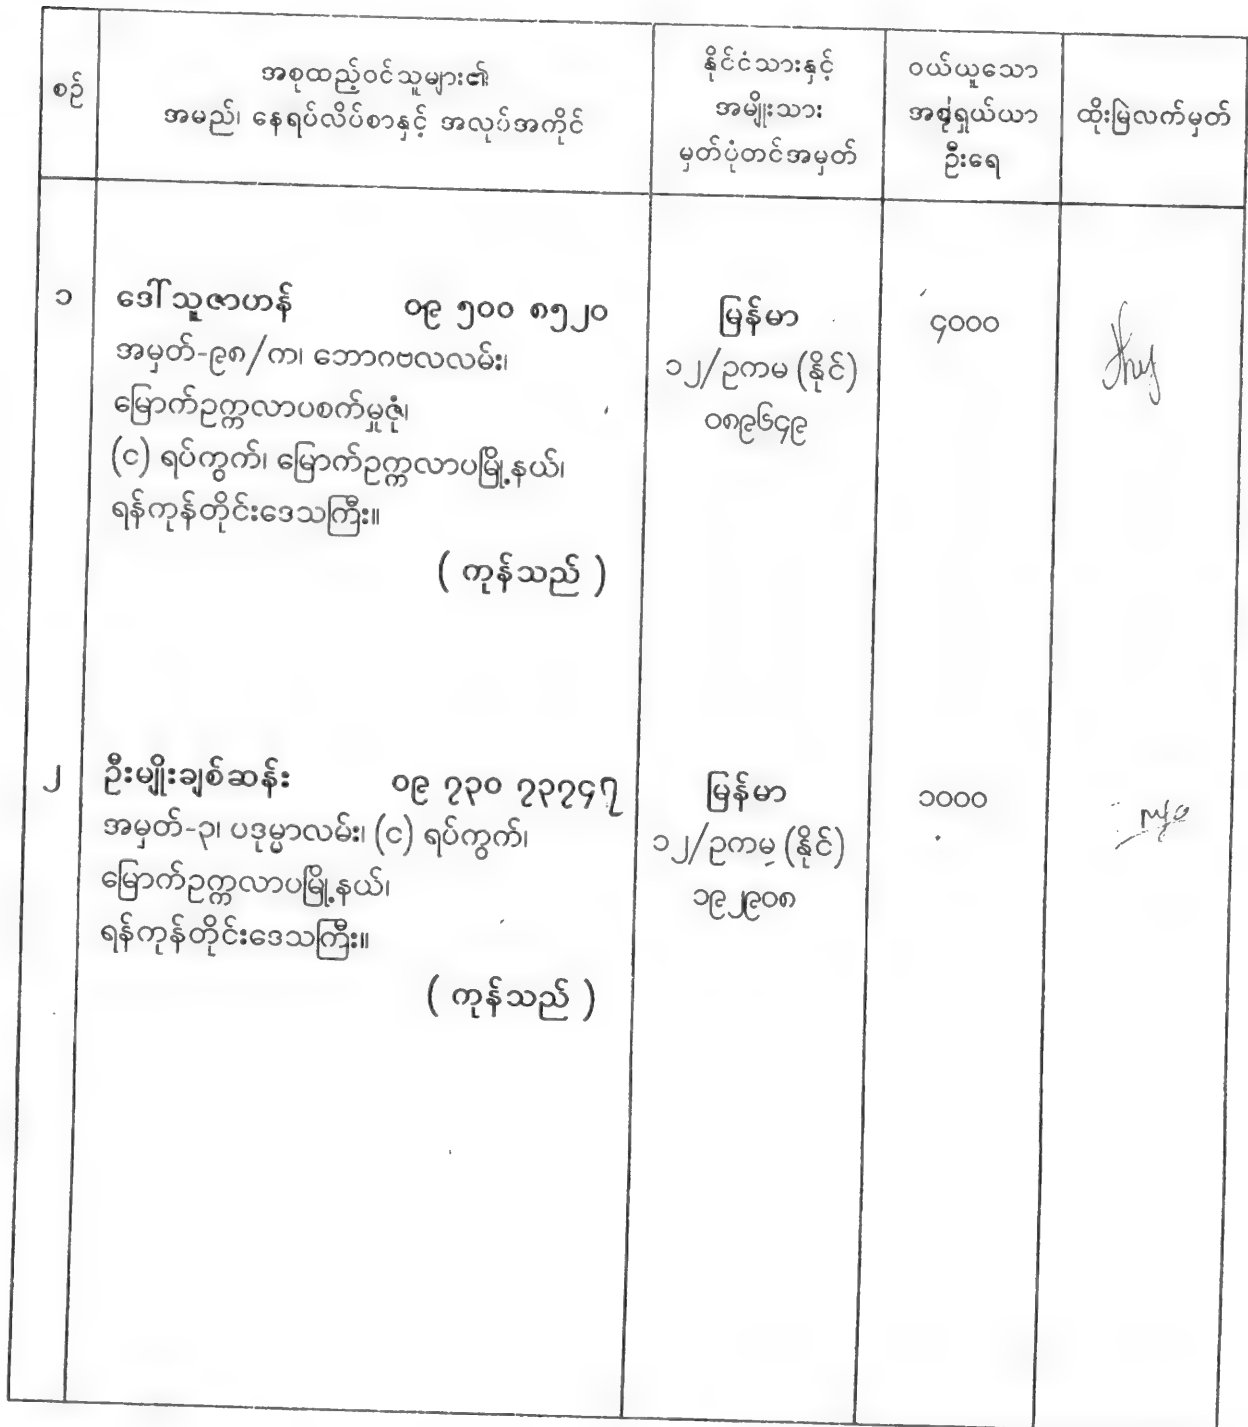 စဉ်
အစုထည့်ဝင်သူများ၏
အမည်၊ နေရပ်လိပ်စာနှင့် အလုပ်အကိုင်
နိုင်ငံသားနှင့်
အမျိုးသား
မှတ်ပုံတင်အမှတ်
ဝယ်ယူသော
အစုရှယ်ယာ
ဦးရေ
ထိုးမြဲလက်မှတ်
၁
ဒေါ်သူဇာဟန် ၀၉ ၅၀၀ ၈၅၂၀
အမှတ်-၉၈/က၊ ဘောဂဗလလမ်း၊
မြောက်ဥက္ကလာပစက်မှုဇုံ၊
(င) ရပ်ကွက်၊ မြောက်ဥက္ကလာပမြို့နယ်၊
ရန်ကုန်တိုင်းဒေသကြီး။
( ကုန်သည် )
မြန်မာ
၁၂/ဥကမ (နိုင်)
၀၈၉၆၄၉
၄၀၀၀
၂
ဦးမျိုးချစ်ဆန်း ၀၉ ၇၃၀ ၇၃၇၄၇
အမှတ်-၃၊ ပဒုမ္မာလမ်း၊ (င) ရပ်ကွက်၊
မြောက်ဥက္ကလာပမြို့နယ်၊
ရန်ကုန်တိုင်းဒေသကြီး။
( ကုန်သည် )
မြန်မာ
၁၂/ဥကမ (နိုင်)
၁၉၂၉၀၈
၁၀၀၀